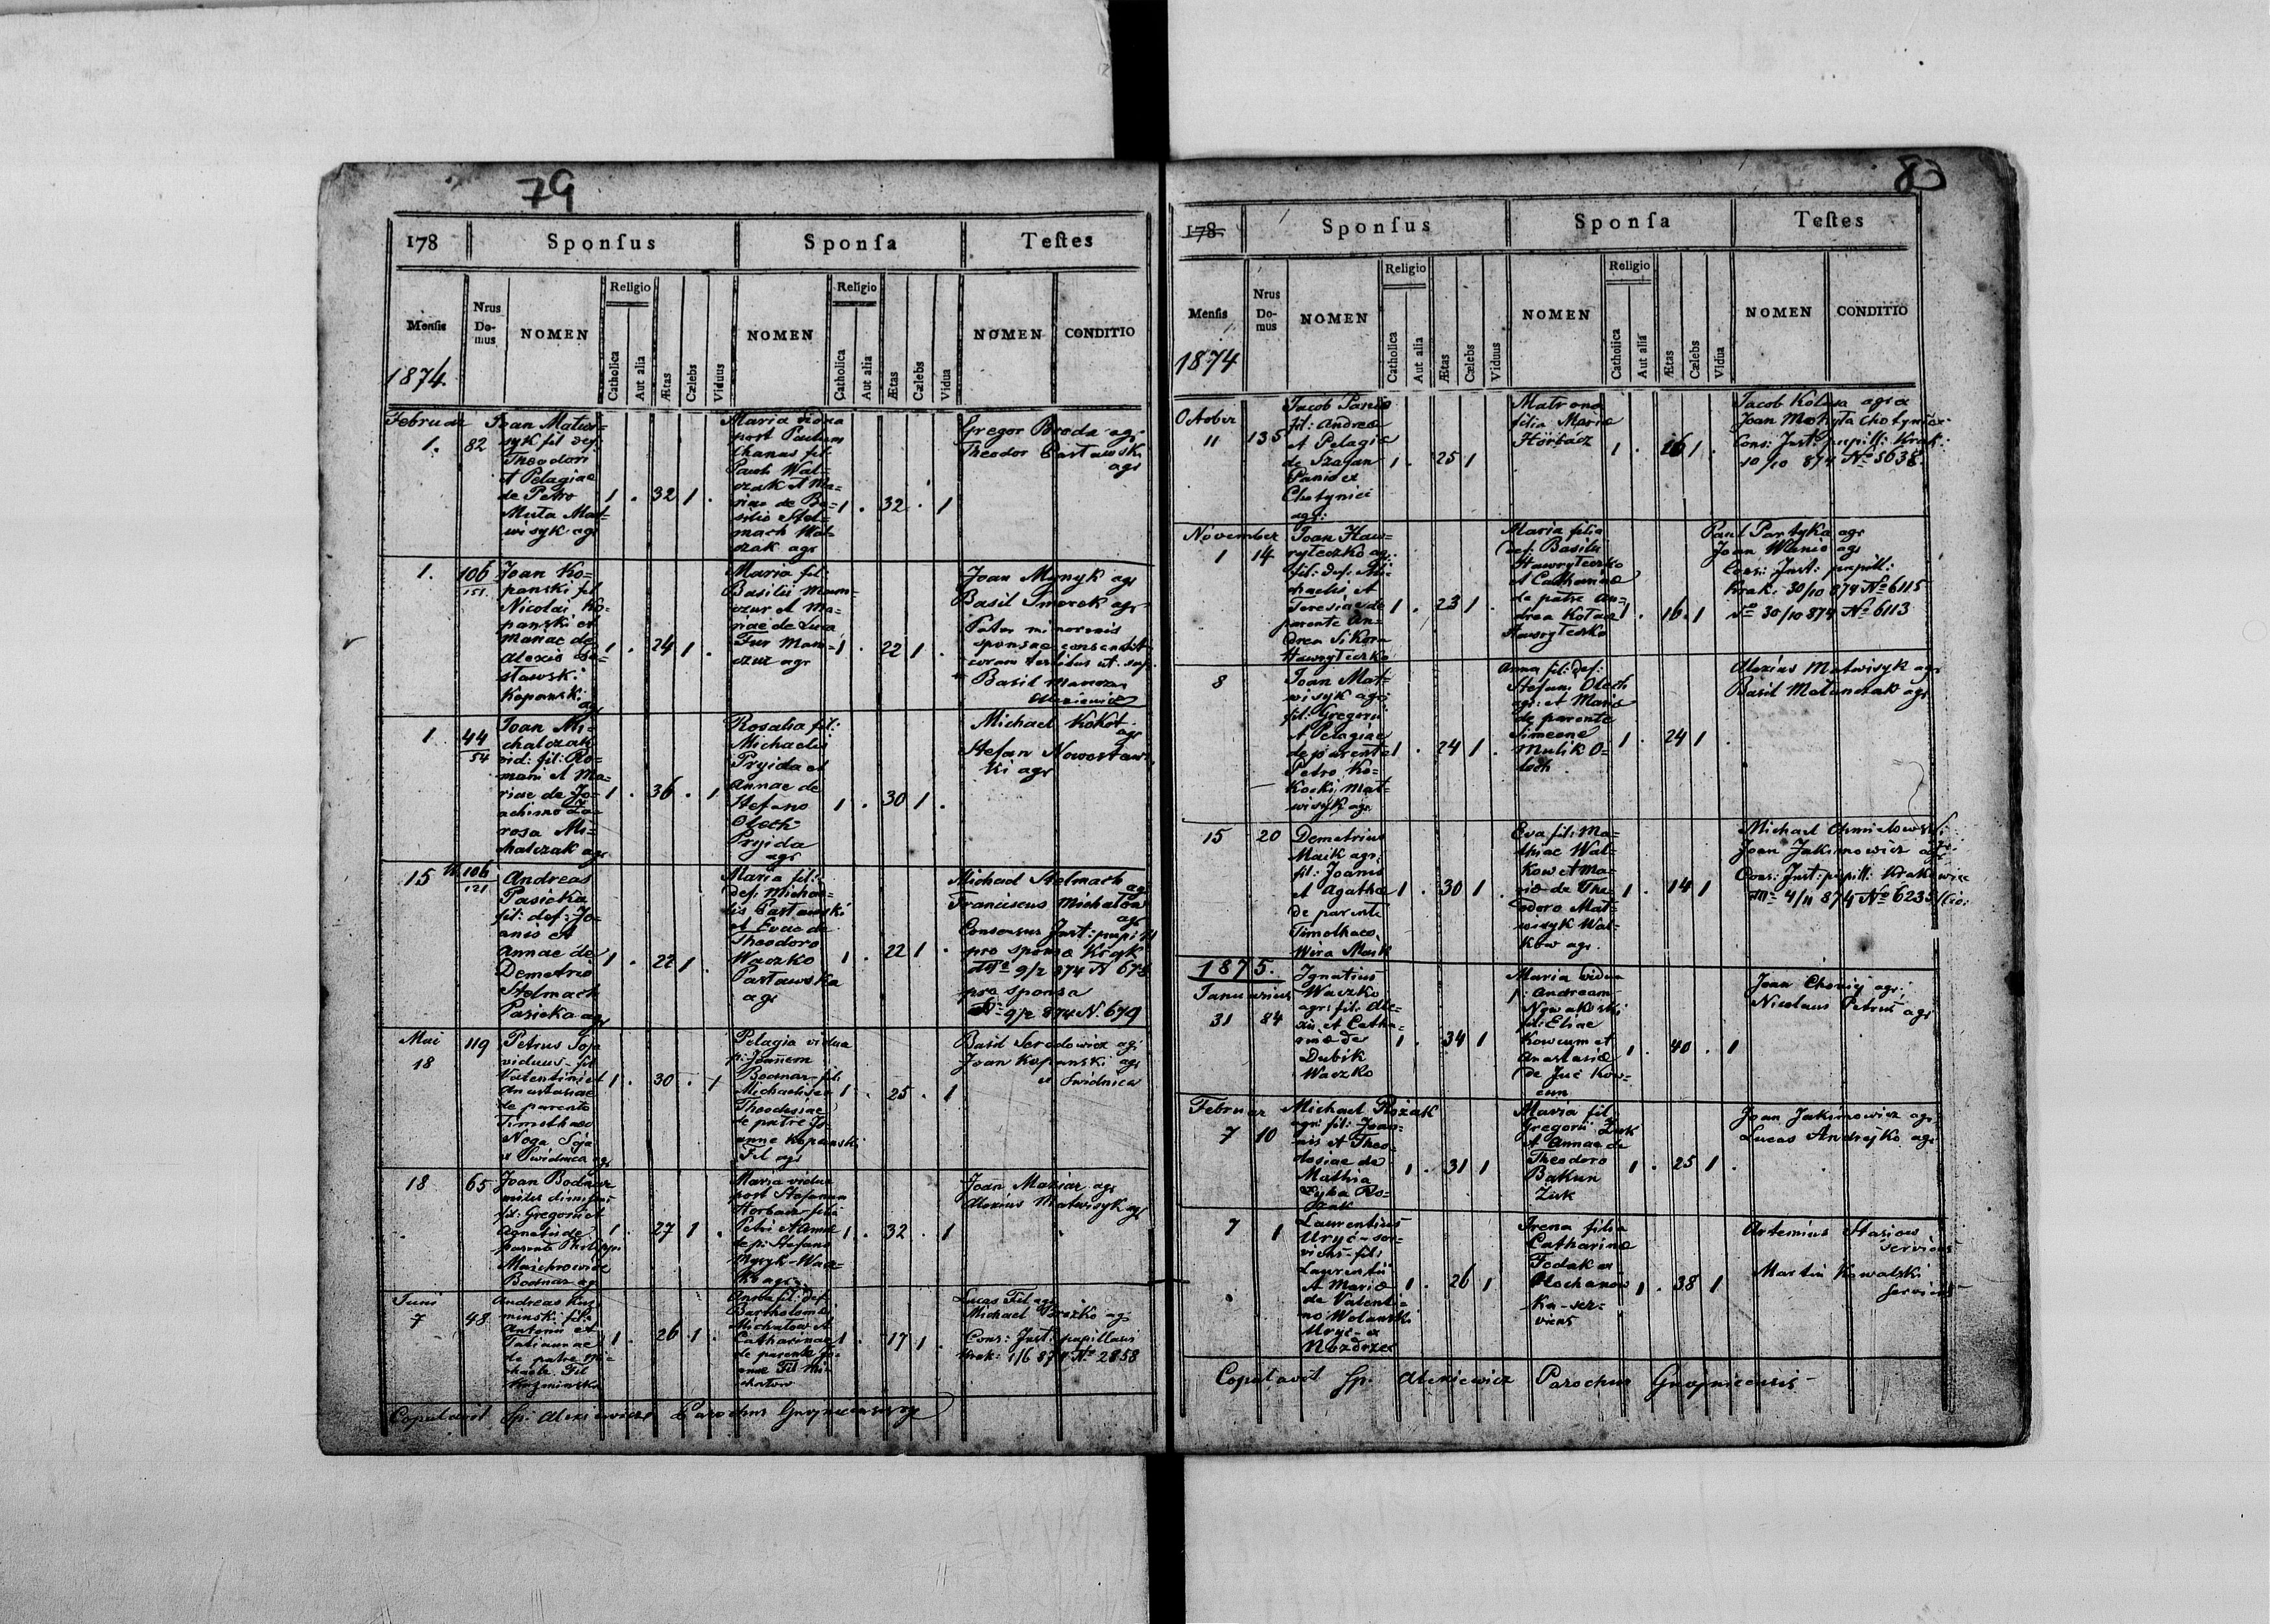 79
178 Sponſus Sponſa Teſtes
Menſis Nrus Do- mus NOMEN Religio Catholica Aut alia Ætas Cælebs Viduus NOMEN Religio Catholica Aut alia Ætas Cælebs Vidua NOMEN CONDITIO
1874
Februar
1. 82
Joan Matwi-
syk fil def:
Theodori
et Pelagiae
de Petro
Muta Mat-
wisyk agr
1 . 32 1 .
Maria vidua
post Paulum
fil:
Pauli Wal-
czak et Ma-
riae de Ba-
silio Stel-
mach Wal-
czak agr
1 . 32 . 1
Gregor Broda agr
Theodor Partawski
agr
1. 106
151
Joan Ko-
panski fil
Nicolai Ko-
panski et
Mariae de
Alexio
Kopanski
agr
1 . 24 1 .
Maria fil:
Basilii Mam-
czur et Ma-
riae de Luca
Fur Mam-
czur agr
1 . 22 1 .
Joan Mynyk agr
Basil Smorek agr
Pater minorenis
sponsae consensit
coram testibus ut sup.
Basil Mamczur
Alexiewicz
1. 44
54
Joan Mi-
chalczak
vid: fil: Ro-
mani et Ma-
riae de Jo-
achimo Za-
rosa Mi-
chalczak agr
1 . 36 . 1
Rosalia fil:
Michaelis
Pryjda et
Annae de
Stefano
Olech
Pryjda
agr
1 . 30 1 .
Michael Kokot
agr
Stefan Nowostaws-
ki agr
15 106
121
Andreas
Pasieka
fil: def: Jo-
anis et
Annae de
Demetrio
Stelmach
Pasieka agr
1 . 22 1 .
Maria fil:
def. Michae-
lis Partawski
et Evae de
Theodoro
Waczko
Partawska
agr
1 . 22 1 .
Michael Stelmach
agr
Franciscus Michalow
agr
Consensus Just: pupill
pro sponso Krak
9/2 874 N 678
pro sponsa
9/2 874 N. 679
Mai
18 119
Petrus Soja
viduus fil
Valentini et
Anastasiae
de parente
Timotheo
Noga Soja
ex Swidnica agr
1 . 30 . 1
Pelagia vidua
p: Joannem
Bodnar fil.
Michaelis et
Theodosiae
de patre Jo-
anne Kopanski
Fil agr
1 . 25 . 1
Basil Seredowicz agr
Joan Kopanski agr
ex Swidnica
18 65
Joan Bodnar
miles dimiss:
fil: Gregorii et
Agnetis de
parente Philippo
Maichrowicz
Bodnar agr
1 . 27 1 .
Maria vidua
post Stefanum
Horbacz filia
Petri et Annae
de p: Stefano
Mycyk Wacz-
ko agr
1 . 32 . 1
Joan Maziar agr
Alexius Matwisyk agr
Juni
7 48
Andreas Kuz-
minski fil:
Antonii et
Tatiannae
de patre Mi-
chaele Fil
Kuzminska
1 . 26 1 .
Anna fil: def.
Bartholomei
Michalow et
Catharinae
de parente Jo-
anne Fil Mi-
chalow
1 . 17 1 .
Lucas Fil agr
Michael Broszko agr
Cons: Just: pupillaris
Krak: 1/6 874 No 2858
Copulavit Sp. Alexiewicz Parochus Gnojnicensis
80
178 Sponſus Sponſa Teſtes
Menſis Nrus Do- mus NOMEN Religio Catholica Aut alia Ætas Cælebs Viduus NOMEN Religio Catholica Aut alia Ætas Cælebs Vidua NOMEN CONDITIO
1874
October
11 135
Jacob Panio
fil: Andreae
et Pelagiae
de Szajan
Panio ex
Chotyniec
agr:
1 . 25 1
Matrona
filia Mariae
Horbacz
1 . 16 1 .
Jacob Kolasa agr
Joan Mokryta Chotyniec
Cons: Just: pupill: Krak:
10/10 874 No 5638.
November
1 14
Joan Haw-
ryleczko agr.
fil: def. Mi-
chaelis et
Teresiae de
parente An-
drea Sikora
Hawryleczko
1 . 23 1 .
Maria filia
def. Basilii
Hawryleczko
et Catharinae
de patre An-
drea Kotacz
Hawryleczko
1 . 16 . 1
Paul Partyka agr
Joan Wanio agr
Cons: Just: pupill:
Krak. 30/10 874 No 6115
30/10 874 No 6113
8
Joan Mat-
wisyk agr.
fil: Gregorii
et Pelagiae
de parente
Petro Ko-
Mat-
wisyk agr.
1 . 24 1 .
Anna fil: def:
Stefani Olech
agr: et Mariae
de parente
Simeone
Mulik O-
lech
1 . 24 1 .
Alexius Matwisyk agr
Basil Matunczak agr
15 20
Demetrius
Maik agr.
fil: Joanis
et Agathae
de parente
Timotheo
Wira Maik
1 . 30 1
Eva fil: Ma-
thiae Wal-
kow et Ma-
riae de The-
odoro Mat-
wisyk Wal-
kow agr.
1 . 14 1
Michael Chmielowski
Joan Jakimowicz agr
Cons: Just: pupill: Krakowiec
4/11 874 No 6235
1875.
Januarius
31 84
Ignatius
Waczko
agr: fil: Ale-
xii et Catha-
rinae de
Dubik
Waczko
1 . 34 1
Maria vidua
p: Andream
Nowakoski
fil: Eliae
Kowcun et
Anastasiae
de Juć Kow-
cun
1 . 40 . 1
Joan Chomij agr:
Nicolaus Petrus agr
Februar
7 10
Michael Rożak
agr fil: Joan-
nis et Theo-
dosiae de
Mathia
Zyła Ro-
żak
1 . 31 1
Maria fil:
Gregorii Żuk
et Annae de
Theodoro
Bakun
Żuk
1 . 25 1 .
Joan Jakimowicz agr.
Lucas Andrejko agr
7 1
Laurentius
Uryć - ser-
viens - fil:
Laurentii
et Mariae
de Valenti-
no Wolanski
Uryć - ex
Nozdrzec
1 . 26 1
Irena filia
Catharinae
Fodak ex
Hochanow
ka - ser-
viens
1 . 38 1
Artemius Stasiow
serviens
Martin Kowalski
serviens
Copulavit Sp. Alexiewicz Parochus Gnojnicensis